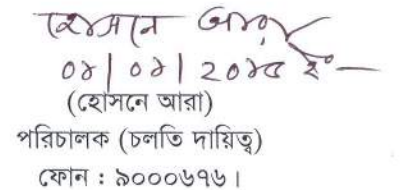 হোসনে আরা
০৪/০৪/২০১৫ ইং
(হোসনে আরা)
পরিচালক (চলতি দায়িত্ব)
ফোন : ৯০০০৬৭৬।